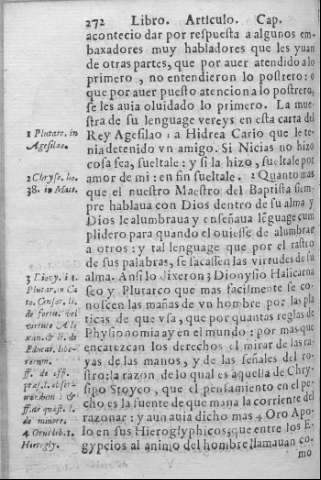 272 Libro. Articulo. Cap.
acontecio dar por respuesta a algunos em-
baxadores muy habladores que les yuan
de otras partes, que por auer atendido a lo
primero, no entendieron lo postrero: o
que por auer puesto atencion a lo postrero,
se les auia oluidado lo primero. La mue-
stra de su lenguage vereys en esta carta del
Rey Agesilao: a Hidrea Cario que le te-
nia detenido vn amigo. Si Nicias no hizo
cosa fea, sueltale: y si la hizo, sueltale por
amor de mi: en fin sueltale. 2 Quanto mas
que el nuestro Maestro del Baptista siem-
pre hablaua con Dios dentro de su alma y
Dios le alumbraua y enseñaua lēguage cum
plidero para quando el ouiesse de alumbrar
a otros: y tal lenguage que por el rastro
de sus palabras, se sacassen las virtudes de su
alma. Ansi lo dixeron 3 Dionysio Halicarna
seo y Plutarco que mas facilmente se co-
noscen las mañas de vn hombre por las pla
ticas de que vsa, que por quantas reglas de
Physionomia ay en el mundo: por mas que
encarezcan los derechos el mirar de las ra-
yas de las manos, y de las señales del ro-
stro: la razon de lo qual es aquella de Chry-
sipo Stoyco, que el pensamiento en el pe-
cho es la fuente de que mana la corriente del
razonar: y aun auia dicho mas 4 Oro Apo
lo en sus Hieroglyphicos, que entre los E-
gypcios al animo del hombre llamauan co-
mo
1 Plutarc. in
Agesilao.
2 Chryse. ho.
38. in Matt.
3 Diony. i
Plutar. in Ca
to. Censor. li.
de fortu. vel
virtute Ale
xan. & li. de
Educat. libe-
rorum.
ff. de
4 Orus lib. 1.
Hierogly.